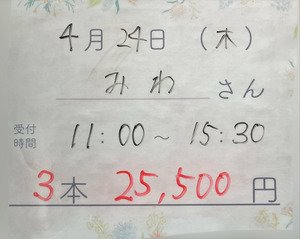 4月24日（木）
みわさん
受付時間 11:00～15:30
3本 25,500円